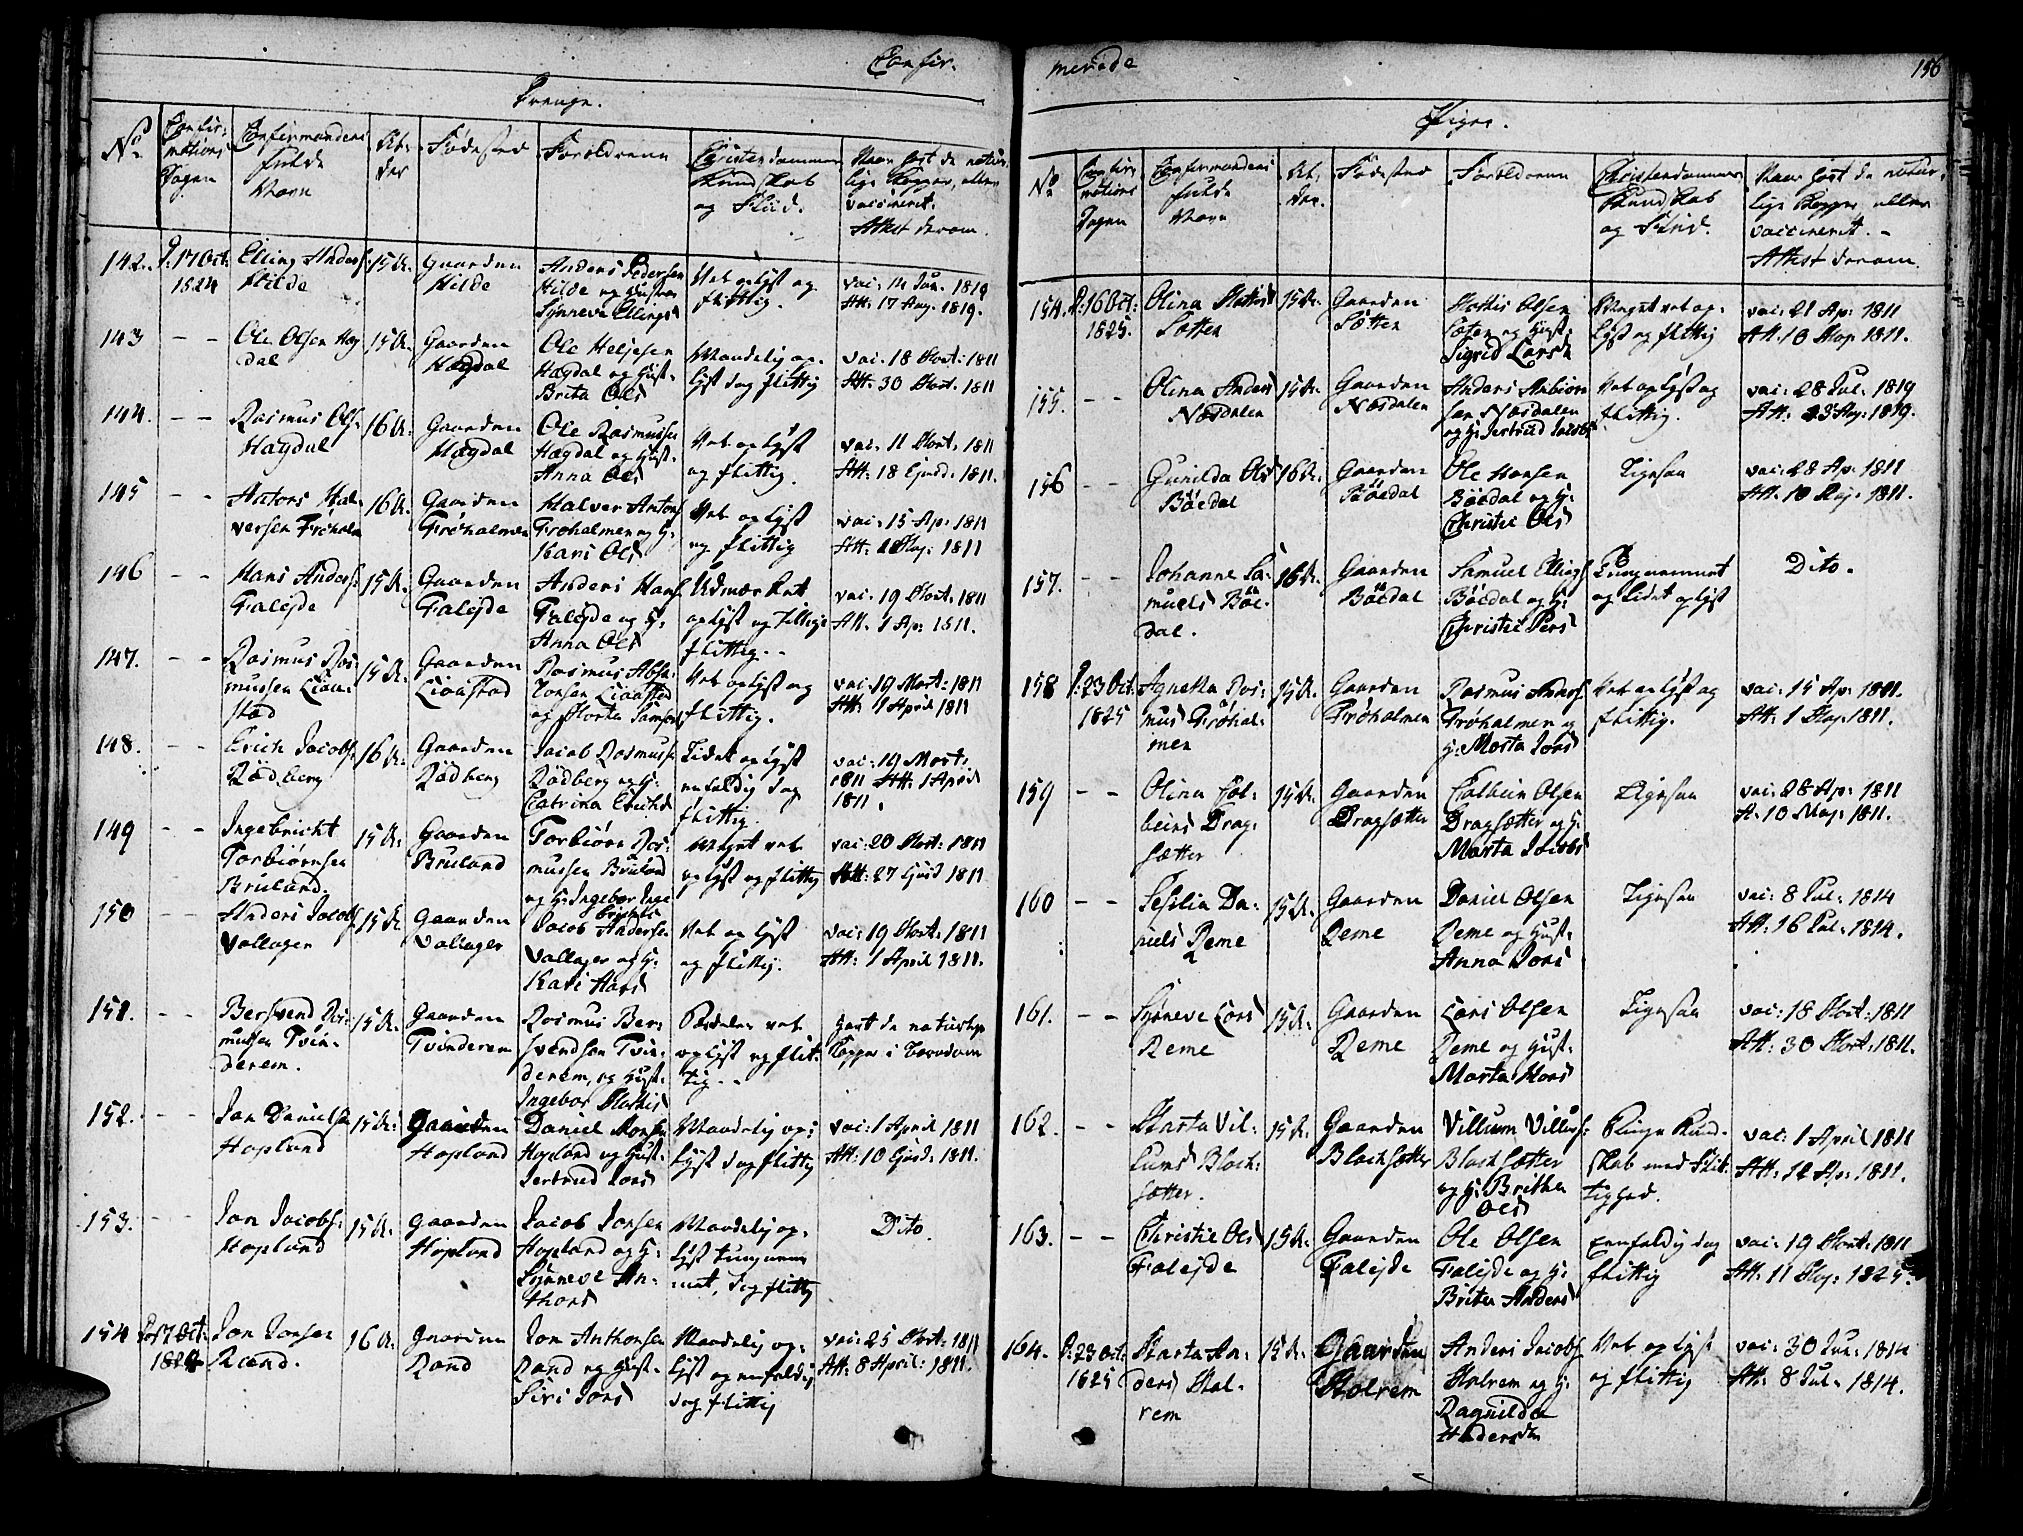 Confir-
Drenge.
No
Confir-
mations
Dagen
Confirmandens
fulde
Navn
Al-
der
Fødested
Forældrene
Christendommens
Kundskab
og Fliid.
Naar havt de natur-
lige Kopper, eller
vaccineret.
Attest derom.
142. D. 17 Oct: 1824
Elling Anders:
Hilde
15 A.
Gaarden
Hilde
Anders Pedersen
Hilde og Hustrue
Synneve Ellings
Vel oplyst og
flittig.
vac: 14 Jun. 1819
Att: 17 Aug. 1819.
143 - -
Ole Olsen Hæg
dal
15 A.
Gaarden
Hægdal
Ole Heljesen
Hægdal og Hust:
Brita Ols
Maadelig op-
lyst dog flittig
vac. 18 Mart: 1811
Att: 30 Mart. 1811
144. - -
Rasmus Ols:
Hægdal
16 A.
Gaarden
Hægdal
Ole Rasmusse
Hægdal og Hust:
Anna Ols
Vel oplyst
og flittig.
vac: 11 Mart: 1811
Att: 18 1811.
145 - -
Antons Hal-
versen Frøholm
16 A.
Gaarden
Frøholmen
Halver Antons
Frøholmen og H:
Kari Ols
Vel oplyst
og flittig
vac: 15 Ap: 1811
Att: Maj: 1811
146 - -
Hans Anders:
Falejde
15 A.
Gaarden
Falejde
Anders Hans:
Falejde og H:
Anna Ols
Udmærket
oplyst og tillige
flittig. -
vac. 19 Mart: 1811
Att. 1 Ap: 1811.
147. - -
Rasmus Ras-
mussen Lioa-
stad
15 A.
Gaarden
Lioastad
Rasmus Absa-
lonsen Lioastad
og Marta Samsons
Vel oplyst og
flittig.
vac: 19 Mart: 1811
Att: 1 April 1811
148. - -
Erich Jacobs:
Rødberg
16 A.
Gaarden
Rødberg
Jacob Rasmuss:
Rødberg og H:
Catrina Erichs
Lidet oplyst
enfoldig dog
flittig.
vac: 19 Mart:
1811 Att: 1 April
1811.
149 - -
Ingebricht
Torbiørnsen
Bruland.
15 A.
Gaarden
Bruland
Torbiørn Ras-
mussen Bruland
og H: Ingebor Inge
brichts
Meget vel
oplyst og flittig
vac: 20 Mart: 1811
Att: 27 1811
150 - -
Anders Jacobs:
Vallager
15 A.
Gaarden
Vallager
Jacob Anderse-
Vallager og H:
Kari Hans
Vel oplyst
og flittig.
vac: 19 Mart: 1811
Att: 1 April 1811.
151. - -
Bersvend Ras-
mussen Tvin-
derem.
15 A.
Gaarden
Tvinderem
Rasmus Ber-
svendsen Tvin-
derem, og Hust:
Ingebor Mathis
Særdeles vel
oplyst og flit-
tig. -
havt de naturlige
Kopper i Barndom
152. - -
Jon Danielse
Hopland
15 A.
Gaarden
Hopland
Daniel Monsen
Hopland og Hust:
Jertrud Jons
Maadelig op-
lyst dog flittig
vac: 1 April 1811
Att: 10 1811.
153. - -
Jon Jacobs:
Hopland
15 A.
Gaarden
Hopland
Jacob Jonsen
Hopland og H:
Synneve An-
thons
Maadelig op-
lyst tungnem-
met, dog flittig
Dito.
154 17 Oct:
1824
Jon Jonsen
Rand.
16 A.
Gaarden
Rand
Jon Anthonsen
Rand og Hust:
Siri Jons
Maadelig op-
lyst og enfoldig
dog flittig
vac: 25 Mart: 1811
Att: 8 April: 1811.
merede
156
Piger.
No
Confir-
mations
Dagen
Confirmandens
fulde
Navn
Al-
der.
Fødested
Forældrene
Christendommens
Kundskab
og Fliid.
Naar havt de natur-
lige Kopper eller
vaccineret. -
Attest derom.
154. D. 16 Oct:
1825.
Olina Mathis
Sætten
15 A.
Gaarden
Sætten
Mathis Olsen
Sæten og Hust:
Sigrid Lars
Meget vel op-
lyst og flittig
vac: 21 Ap: 1811
Att. 10 Maj 1811.
155. - -
Olina Anders
Næsdalen
15 A.
Gaarden
Næsdalen
Anders Anbiørn
sen Næsdalen
og H: Jertrud Jacobs
Vel oplyst og
flittig.
vac: 28 Jul: 1819
Att: 23 Aug: 1819.
156 - -
Gunilda Ols
Bødal
16 A.
Gaarden
Bødal
Ole Hansen
Bødal og H:
Christie Ols
Ligesaa
vac: 28 Ap: 1811
Att: 10 Maj: 1811.
157. - -
Johanne Sa-
muels Bøe-
dal.
16 A.
Gaarden
Bøedal
Samuel Ellings
Bøedal og H:
Christie Pers
Tungnemmet
og lidet oplyst
Dito.
158 D: 23 Oct:
1825
Agnetta Ras-
mus Frøhol-
men
15 A.
Gaarden
Frøholmen
Rasmus Anders
Frøholmen og
H: Marta Jons
Vel oplyst og
flittig.
vac: 15 Ap: 1811.
Att: 1 Maj 1811.
159 - -
Olina Col-
beins Drag-
sætter
15 A.
Gaarden
Dragsætter
Colbein Olsen
Dragsætter og H:
Marta Jacobs
Ligesaa
vac: 28 Ap: 1811
A. 10 Maj: 1811.
160 - -
Sesilia Da-
niels Reme
15 A.
Gaarden
Reme
Daniel Olsen
Reme og Hust:
Anna Jons
Ligesaa
vac: 8 Jul: 1814
Att: 16 Jul: 1814.
161. - -
Synneve Lars
Reme
15 A.
Gaarden
Reme
Lars Olsen
Reme og Hust:
Marta Hans
Ligesaa
vac: 18 Mart: 1811
Att: 30 Mart: 1811.
162. - -
Marta Vil-
lums Blach-
sætter.
15 A.
Gaarden
Blachsætter
Villum Villums:
Blachsætter
og H: Brithe
Ols
Ringe Kund-
skab med Flit-
tighed.
vac: 1 April 1811
Att: 12 Ap: 1811.
163. - -
Christie Ols
Falejde
15 A.
Gaarden
Falejde
Ole Olsen
Falejde og H:
Brite Anders
Eenfoldig dog
flittig
vac: 19 Mart: 1811
Att: 11 Maj: 1825.
164. D: 23 Oct:
1825
Marta An-
ders Hol-
rem
15 A.
Gaarden
Holrem
Anders Jacobs:
Holrem og H:
Ragnilda
Anders
Vel oplyst
og flittig
vac: 30 Jun: 1814
Att: 8 Jul: 1814.